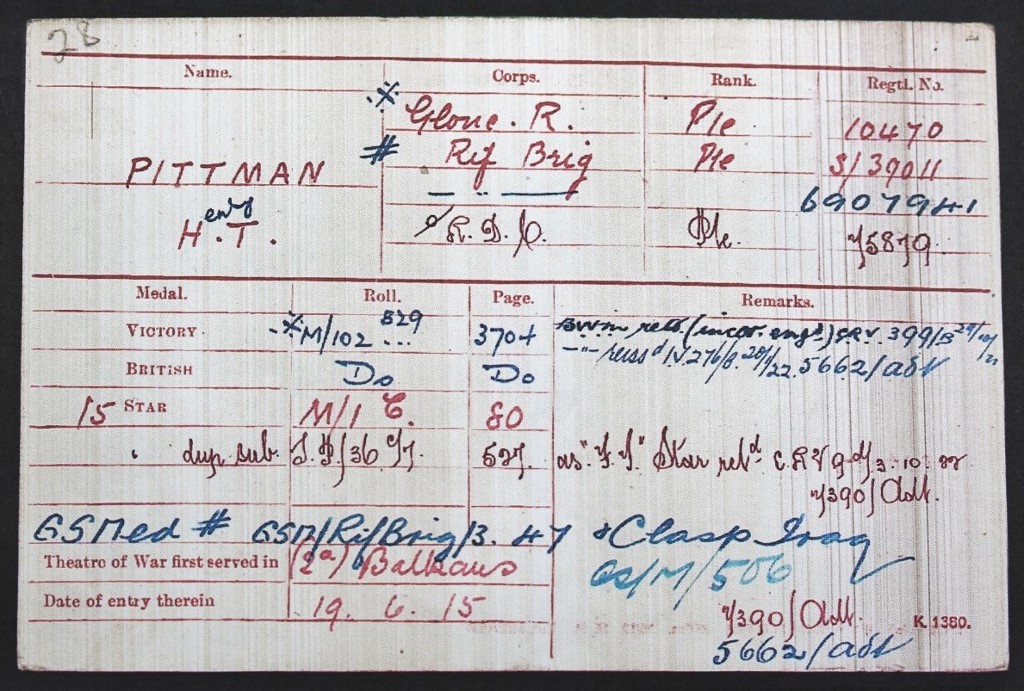 28
Name. Corps. Rank. Regtl. No.
※ Glouc. R. Pte 10470
PITTMAN # Rif Brig Pte S/39011
— " — 6907941
enry
H.T. R.D.C. Pte. 75879
Medal. Roll. Page. Remarks.
VICTORY ※ M/102 B29 ... 3704 BWM retd. (incor. engd) CRV. 399/B
BRITISH Do Do — " — reissd IV. 276/B. 5662/adt
15 STAR M/1 C. 80
" dup sub. 527 as "F.I." Star retd. C.R.V 9 d/ 3.10.22
7/390/Adt.
GSMed # GSM/RifBrig/3. 47 & Clasp Iraq
Theatre of War first served in (2a) Balkans GS/M/506
Date of entry therein 19. 6. 15 7/390/Adt. K. 1380.
5662/adt